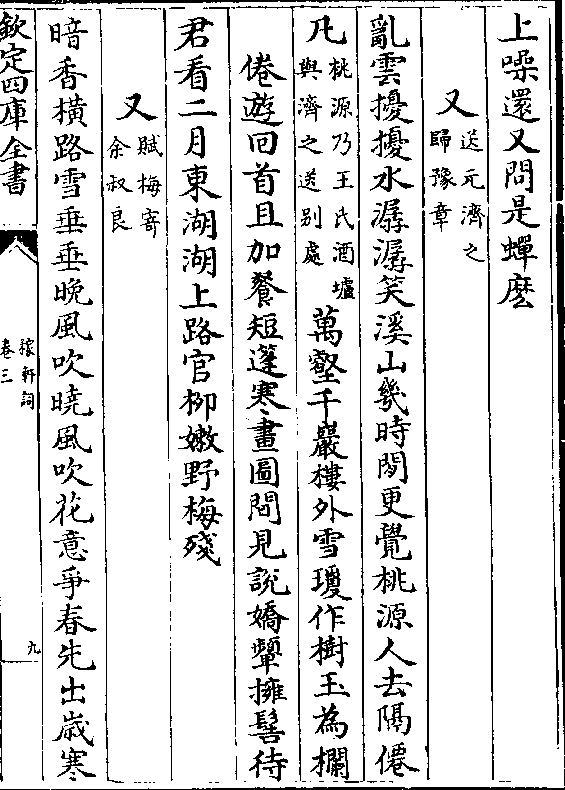 上噪還又問是蟬麽
又送元濟之歸豫章
亂雲擾擾水潺潺笑溪山幾時閒更覺桃源人去隔僊
凡桃源乃王氏酒壚與濟之送别處萬壑千巖樓外雪瓊作樹玉為欄
倦遊回首且加餐短蓬寒畫圖間見説嬌顰擁髻待
君看二月東湖湖上路官栁嫩野梅殘
又賦梅寄余叔良
暗香横路雪垂垂晚風吹曉風吹花意爭春先出歲寒
欽定四庫全書
稼軒詞
卷三
九